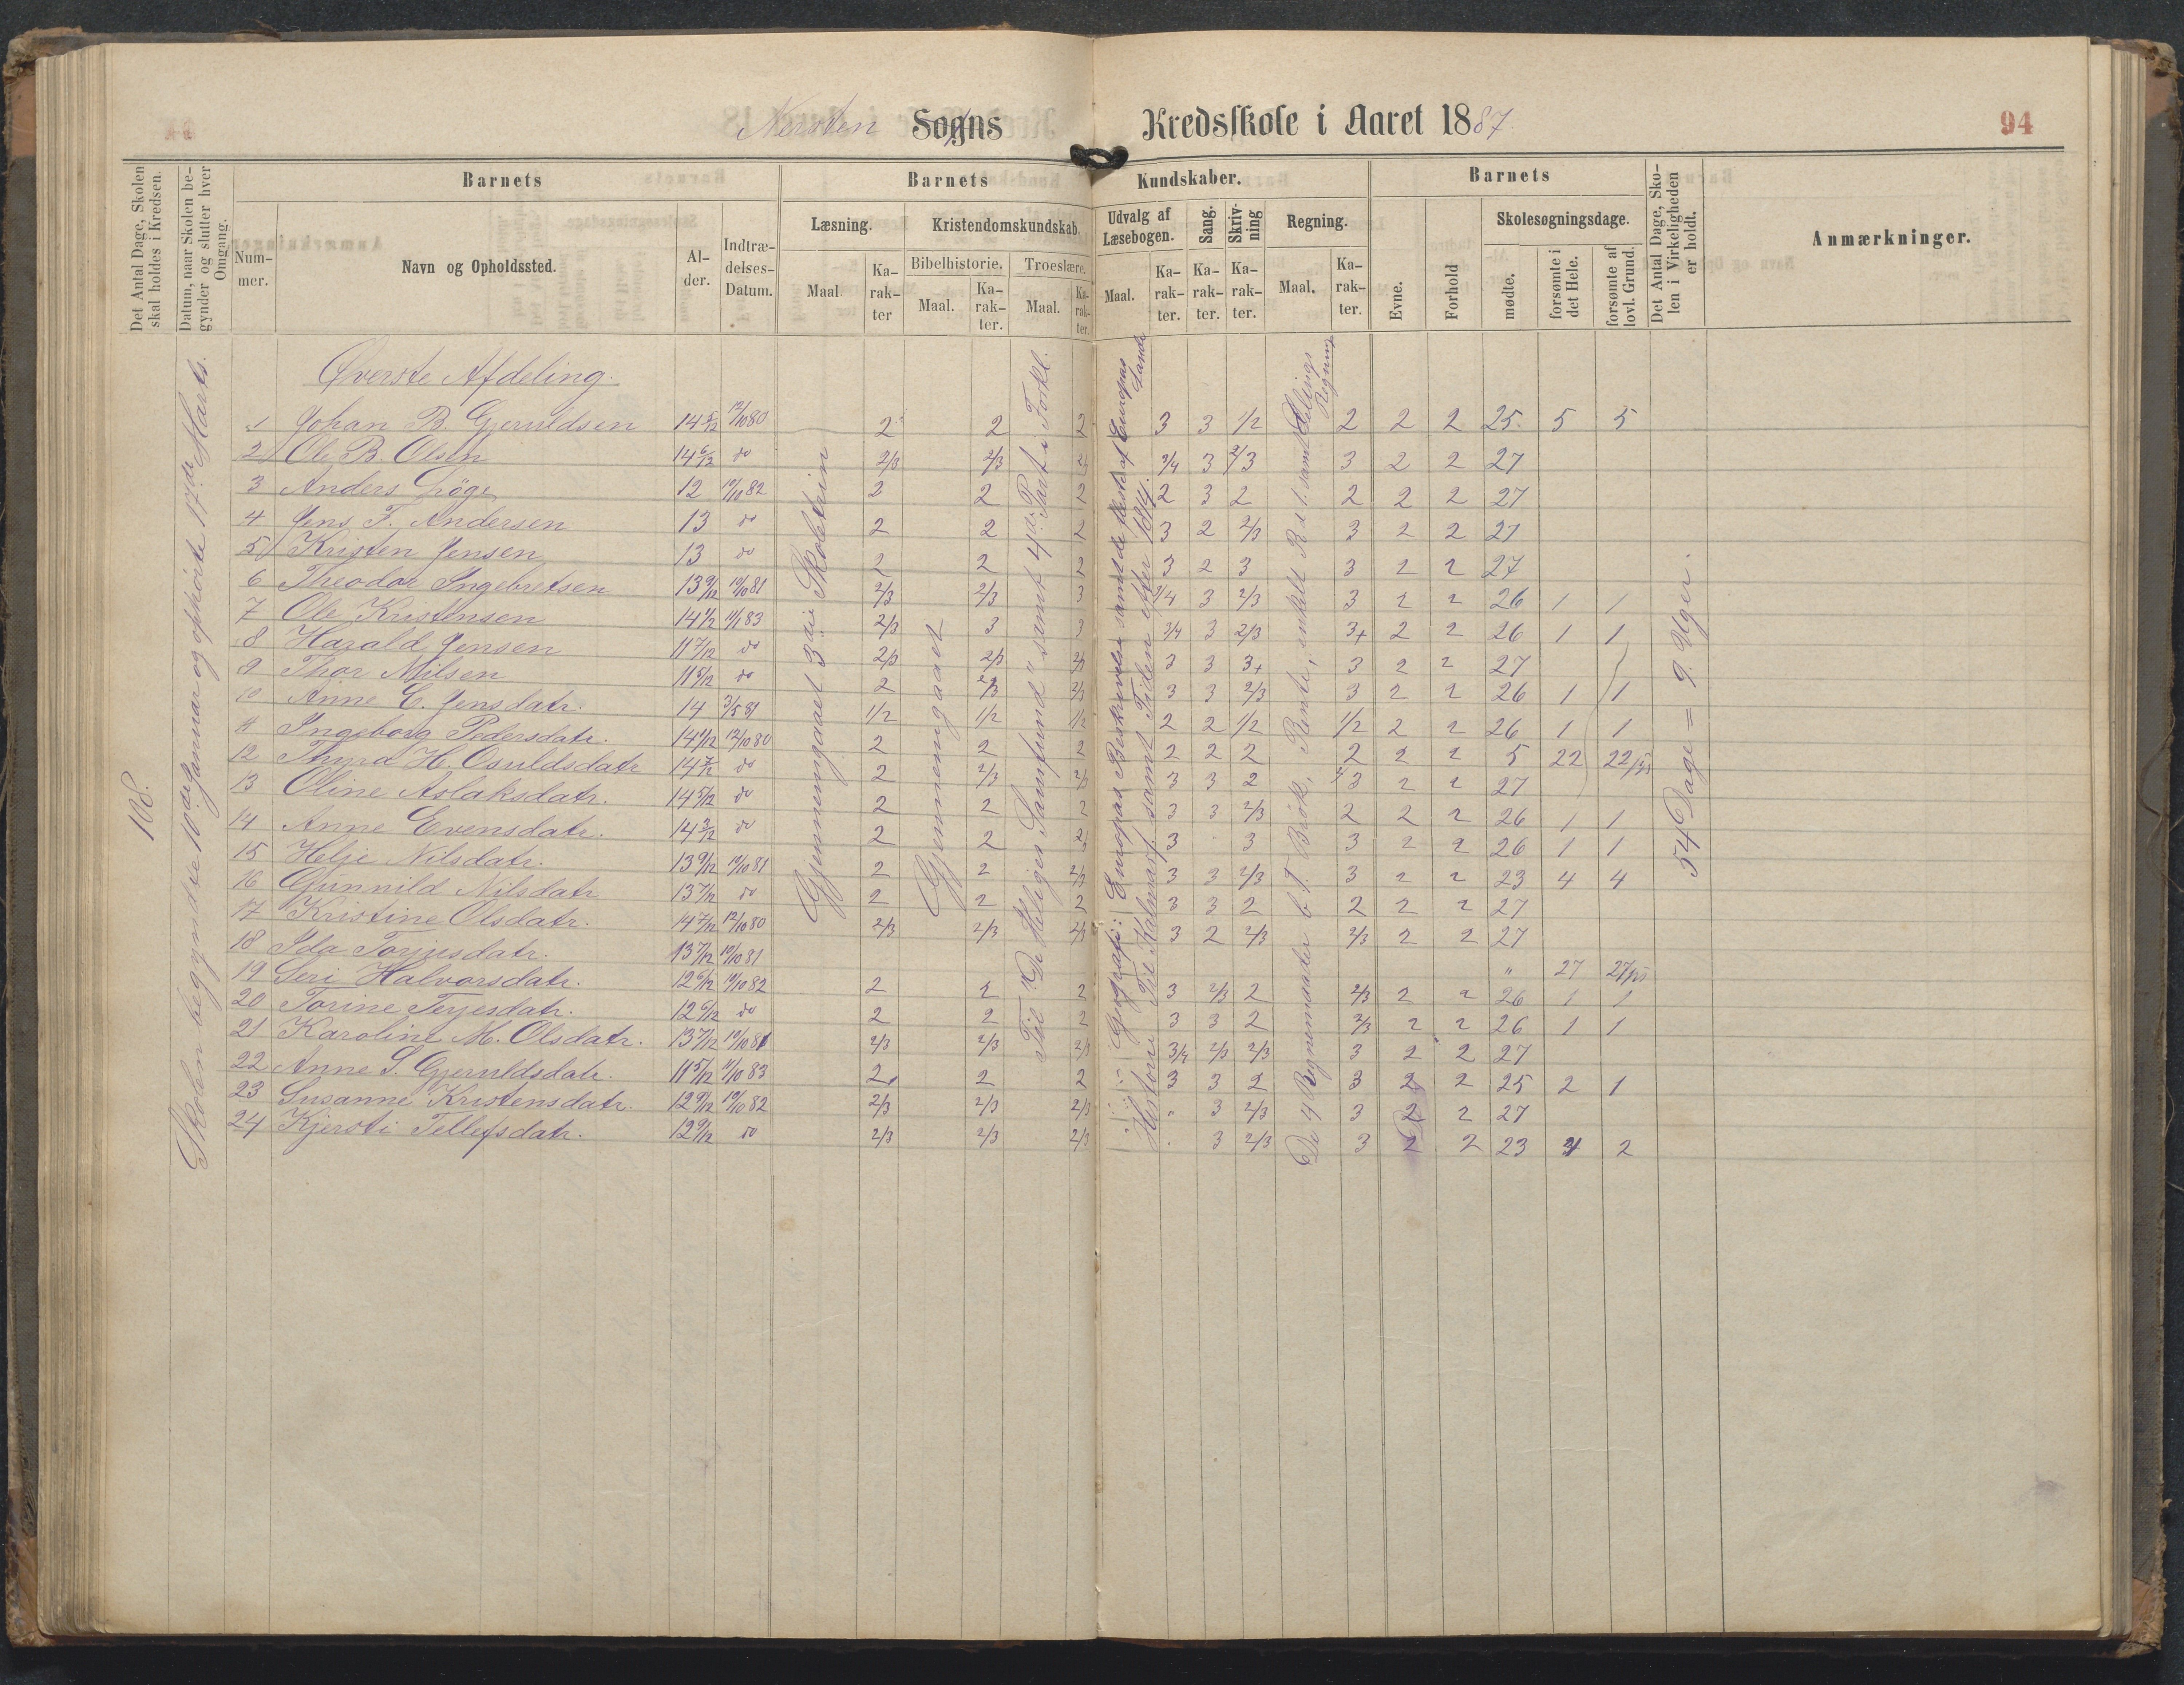 Nersten Sogns Kredsskole i Aaret 1887.
94
Det Antal Dage, Skolen skal holdes i Kredsen.
Datum, naar Skolen begynder og slutter hver Omgang.
Barnets
Nummer.
Navn og Opholdssted.
Alder.
Indtrædelses-Datum.
Barnets Kundskaber.
Læsning.
Maal.
Karakter
Kristendomskundskab.
Bibelhistorie.
Maal.
Karakter.
Troeslære.
Maal.
Karakter.
Udvalg af Læsebogen.
Maal.
Karakter.
Sang.
Karakter.
Skrivning
Karakter.
Regning.
Maal.
Karakter.
Barnets
Evne.
Forhold
Skolesøgningsdage.
mødte.
forsømte i det Hele.
forsømte af lovl. Grund.
Det Antal Dage, Skolen i Virkeligheden er holdt.
Anmærkninger.
108.
Skolen begyndte 10de Januar og ophørte 17de Marts.
Gjennemgaaet 3die Skoletrin
Gjennemgaaet
Til "De Helliges Samfund" samt 4de Part i Forkl.
Geografi: Europas Beskrivelse samt de fleste af Europas Lande
Historie: Til Kalmarf. samt Tiden efter 1814.
De 4 Regnemaader b. T. Brøk, Rente, enkelt R. d. T. samt Delings Regning
54 Dage = 9 Uger.
Øverste Afdeling.
1 Johan B. Gjeruldsen 14 5/12 12/10 80 2 2 2 3 3 1/2 2 2 2 25 5 5
2 Ole B. Olsen 14 6/12 do 2/3 2/3 2/3 3/4 3 2/3 3 2 2 27
3 Anders 12 10/10 82 2 2 2 2 3 2 2 2 2 27
4 Jens F. Andersen 13 do 2 2 2 3 2 2/3 3 2 2 27
5 Kristen Jensen 13 do 2 2 2 3 2 3 3 2 2 27
6 Theodor Ingebretsen 13 9/12 10/10 81 2/3 2/3 3 3/4 3 2/3 3 2 2 26 1 1
7 Ole Kristensen 14 1/2 11/1 83 2/3 3 3 3/4 3 2/3 3+ 2 2 26 1 1
8 Harald Jensen 11 7/12 do 2/3 2/3 2/3 3 3 3+ 3 2 2 27
9 Thor Nilsen 11 5/12 do 2 2/3 2/3 3 3 2/3 3 2 2 26 1 1
10 Anne C. Jensdatr. 14 3/5 81 1/2 1/2 1/2 2 2 1/2 1/2 2 2 26 1 1
11 Ingeborg Pedersdatr. 14 1/12 12/10 80 2 2 2 2 2 2 2 2 2 5 22 22
12 Thyra H. Osuldsdatr 14 7/12 do 2 2/3 2/3 3 3 2 2/3 2 2 27
13 Oline Aslaksdatr. 14 5/12 do 2 2 2 3 3 2/3 2 2 2 26 1 1
14 Anne Evensdatr. 14 3/12 do 2 2 2/3 3 3 3 2 2 26 1 1
15 Helje Nilsdatr. 13 9/12 10/10 81 2 2 2/3 3 3 2/3 3 2 2 23 4 4
16 Gunnild Nilsdatr 13 7/12 do 2 2 2 3 3 2 2 2 2 27
17 Kristine Olsdatr. 14 7/12 12/10 80 2/3 2/3 2/3 3 2 2/3 2/3 2 2 27
18 Ida Torjusdatr. 13 7/12 10/10 81 " 27 27
19 Seri Halvorsdatr. 12 6/12 10/10 82 2 2 2 3 2/3 2 2/3 2 2 26 1 1
20 Torine Terjesdatr. 12 6/12 do 2 2 2 3 3 2 2/3 2 2 26 1 1
21 Karoline M. Olsdatr. 13 7/12 10/10 81 2/3 2/3 2/3 3/4 2/3 2/3 3 2 2 27
22 Anne S. Gjeruldsdatr. 11 5/12 11/10 83 2 2 2 3 3 2 3 2 2 25 2 1
23 Susanne Kristensdatr. 12 9/12 10/10 82 2/3 2/3 2/3 " 3 2/3 3 2 2 27
24 Kjersti Tellefsdatr. 12 9/12 do 2/3 2/3 2/3 . 3 2/3 3 2 2 23 4 2